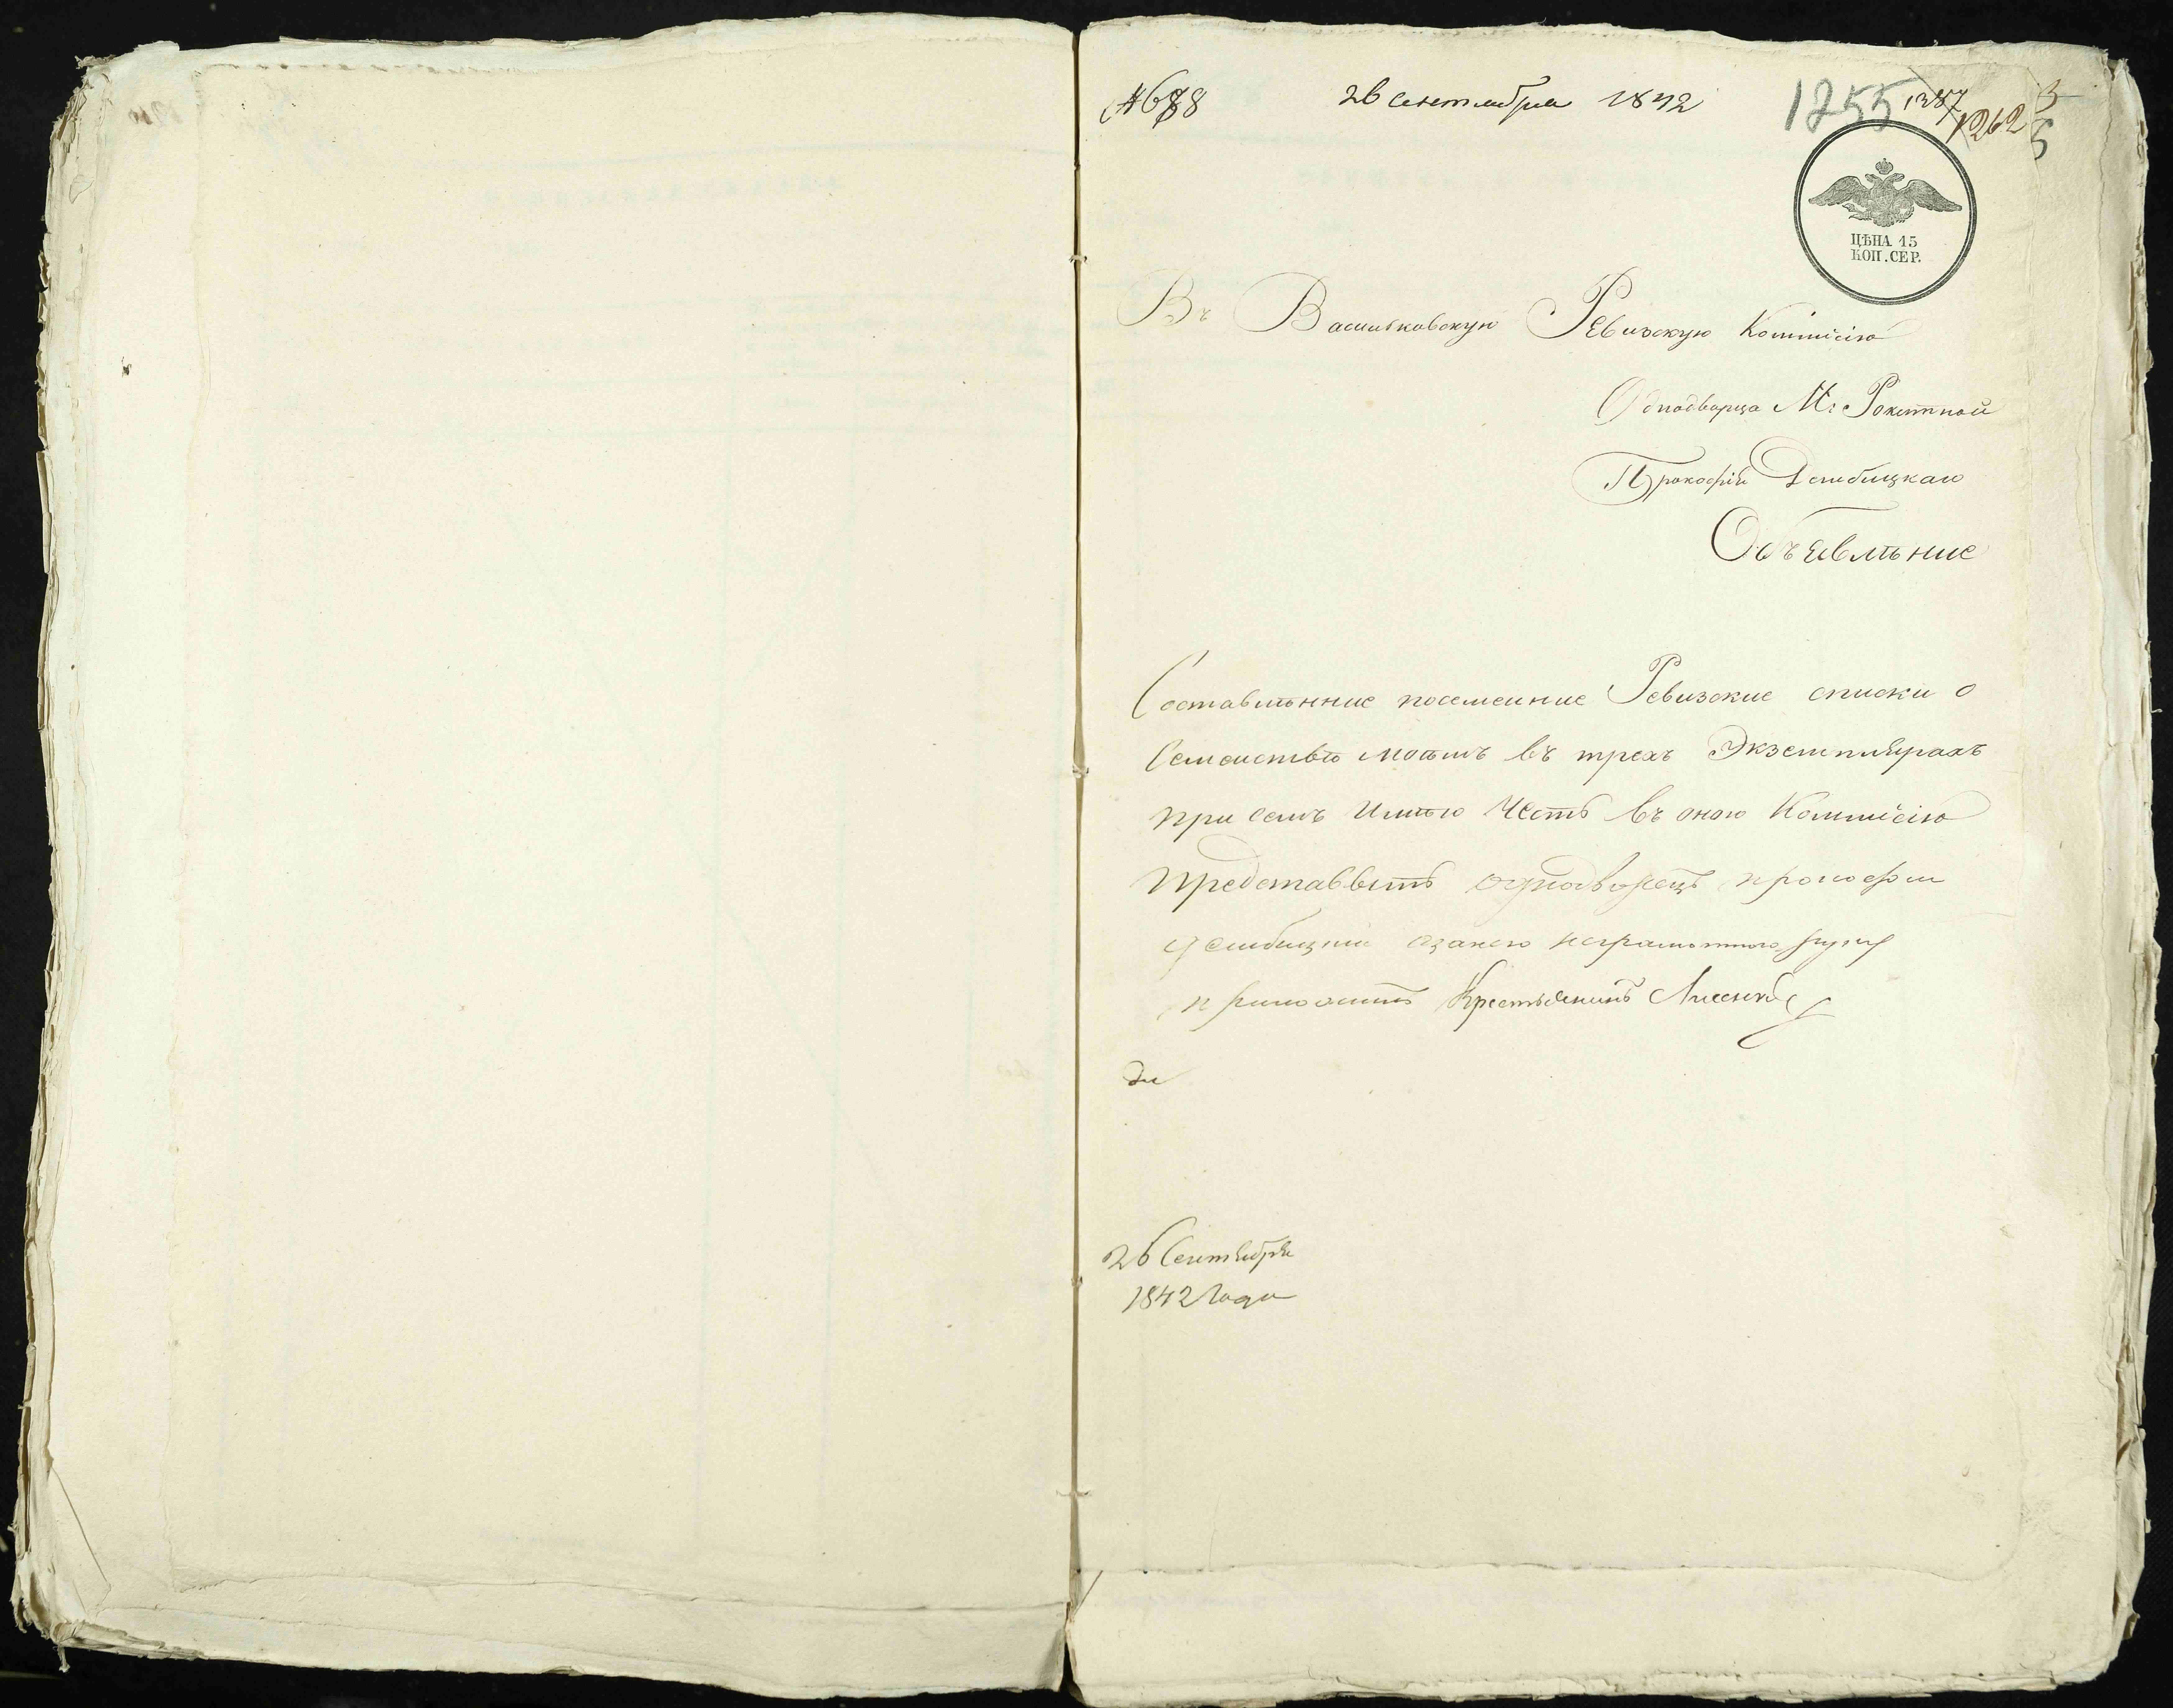 №688 26 сентября 1842 1255 1387 1262
35
ЦѢНА 15
КОП. СЕР.
Въ Васильковскую Ревизскую Коммісію
Однодворца М: Рокитной
Прокофія Дембицкаго
Объявлѣние
Составлѣнние посемейние Ревизские списки о
Семействѣ моѣмъ въ трехъ Экземплярахъ
при семъ Имѣю Честь въ оною Коммісію
Представвить однодворецъ прокофи
дембицкий неграмотного руку
приложилъ Крестьянинъ
26 Сентября
1842 Года